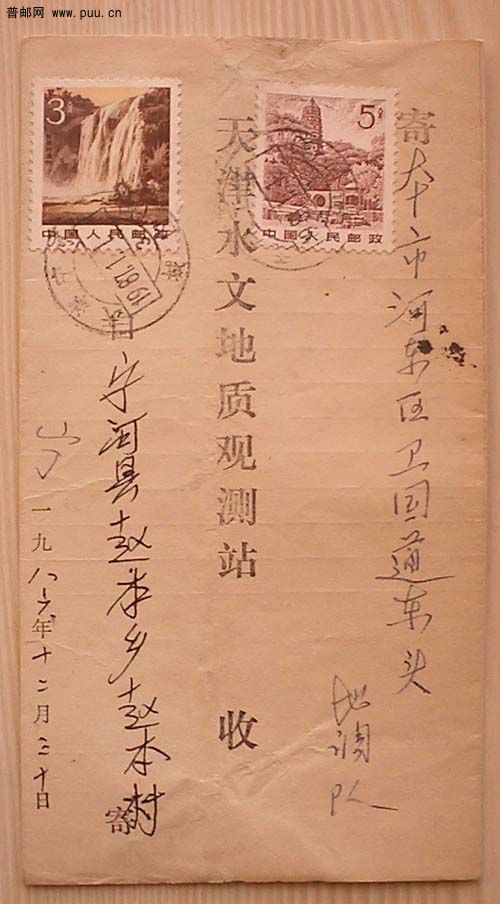 普邮网 www.puu.cn
3分
中国人民邮政
5分
中国人民邮政
寄大十市河东区卫国道东头
地调队
天津水文地质观测站 收
自宁河县赵本乡赵本村寄
一九八六年十二月三十日